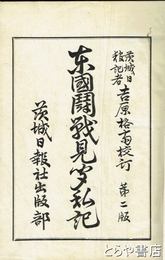 茨城日報記者
吉原格斎校訂 第二版
東國鬪戰見聞私記
茨城日報社出版部
とらや書房